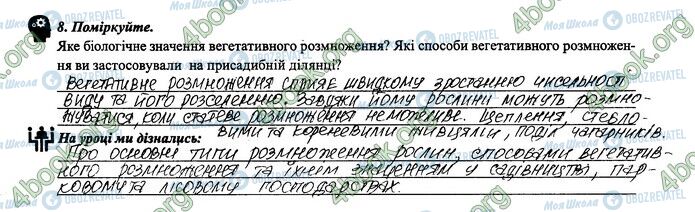 8. Поміркуйте.
Яке біологічне значення вегетативного розмноження? Які способи вегетативного розмножен-
ня ви застосовували на присадибній ділянці?
Вегетативне розмноження сприяє швидкому зростанню чисельності
виду та його розселенню. Завдяки йому рослини можуть розмно-
жуватися, коли статеве розмноження неможливе. Щеплення, стебло-
вими та кореневими живцями, поділ чагарників.
На уроці ми дізнались:
Про основні типи розмноження рослин, способами вегетатив-
ного розмноження та їхнім значенням у садівництві, пар-
ковому та лісовому господарствах.
4book.org
Моя Школа
OBOZREVATEL